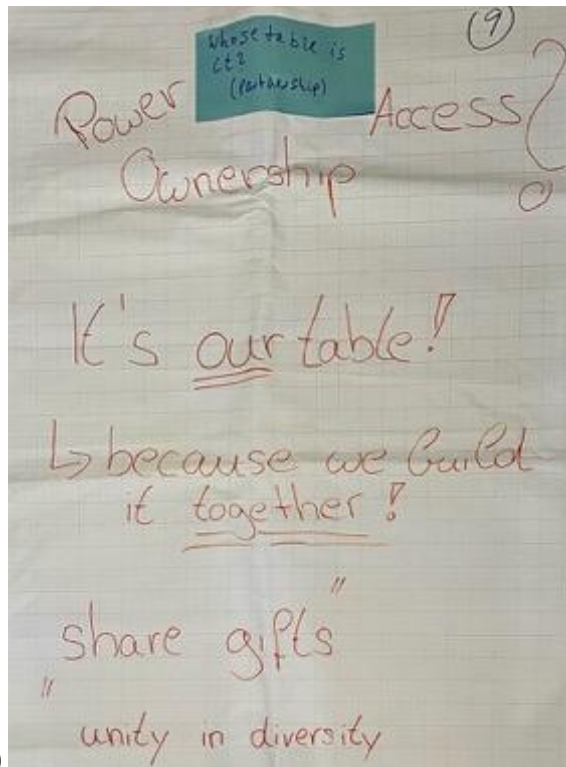 (9)
Whose table is
it?
(Partnership)
Power Access?
Ownership
It's our table!
↳ because we build
it together!
"
share gifts
"
unity in diversity